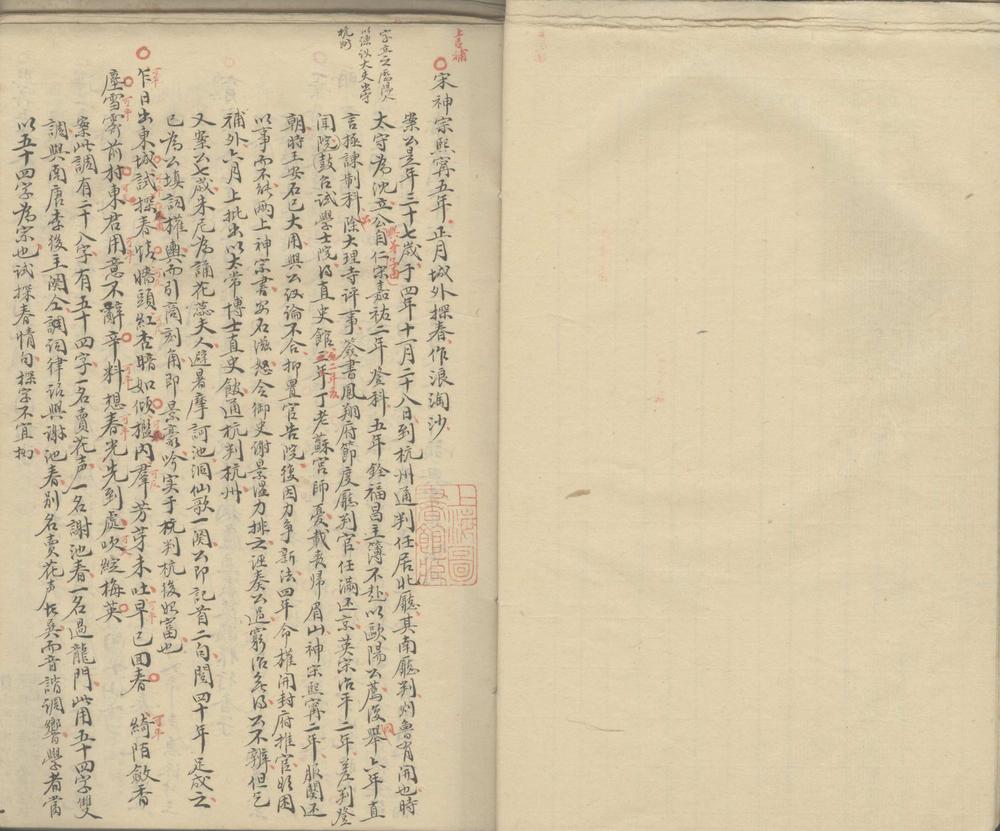 上急補
宋神宗熙寧五年正月城外探春作浪淘沙
字立之歷陽人
以諫議大夫出守
杭州
案公是年三十七歲于四年十一月二十八日到杭州通判任居北廳其南廳判州魯有開也時
太守為沈立公自仁宗嘉祐二年登科五年銓福昌主簿不赴以歐陽公薦復舉六年直
言極諫制科除大理寺評事簽書鳳翔府節度廳判官任滿還京英宗治平二年差判登
聞鼓院召試學士院得直史館三年丁老蘇宮師憂載喪歸眉山神宗熙寧二年服闋還
朝時王安石已大用與公議論不合抑置官告院後因力爭新法四年命權開封府推官將困
以事而不能兩上神宗書安石滋怒令御史謝景溫力排之誣奏公過窮治無所得公不辨但乞
補外六月上批出以太常博士直史館通判杭州
又案公七歲朱尼為誦花蕊夫人避暑摩訶池洞仙歌一闋公即記首二句閱四十年足成之
已為公填詞權輿而引商刻角即景豪吟實于杭判杭後始富也
乍日出東城試探春情牆頭紅杏暗如傾檻內群芳芽未吐早已回春 綺陌斂香
塵雪霽前村東君用意不辭辛料想春光先到處吹綻梅英
案此調有二十八字有五十四字一名賣花声一名謝池春一名過龍門此用五十四字雙
調與南唐李後主闋仝調詞律話與謝池春別名賣花声長異而音諧調響學者當
以五十四字為宗也試探春情句探字不宜拘
上海圖書館藏